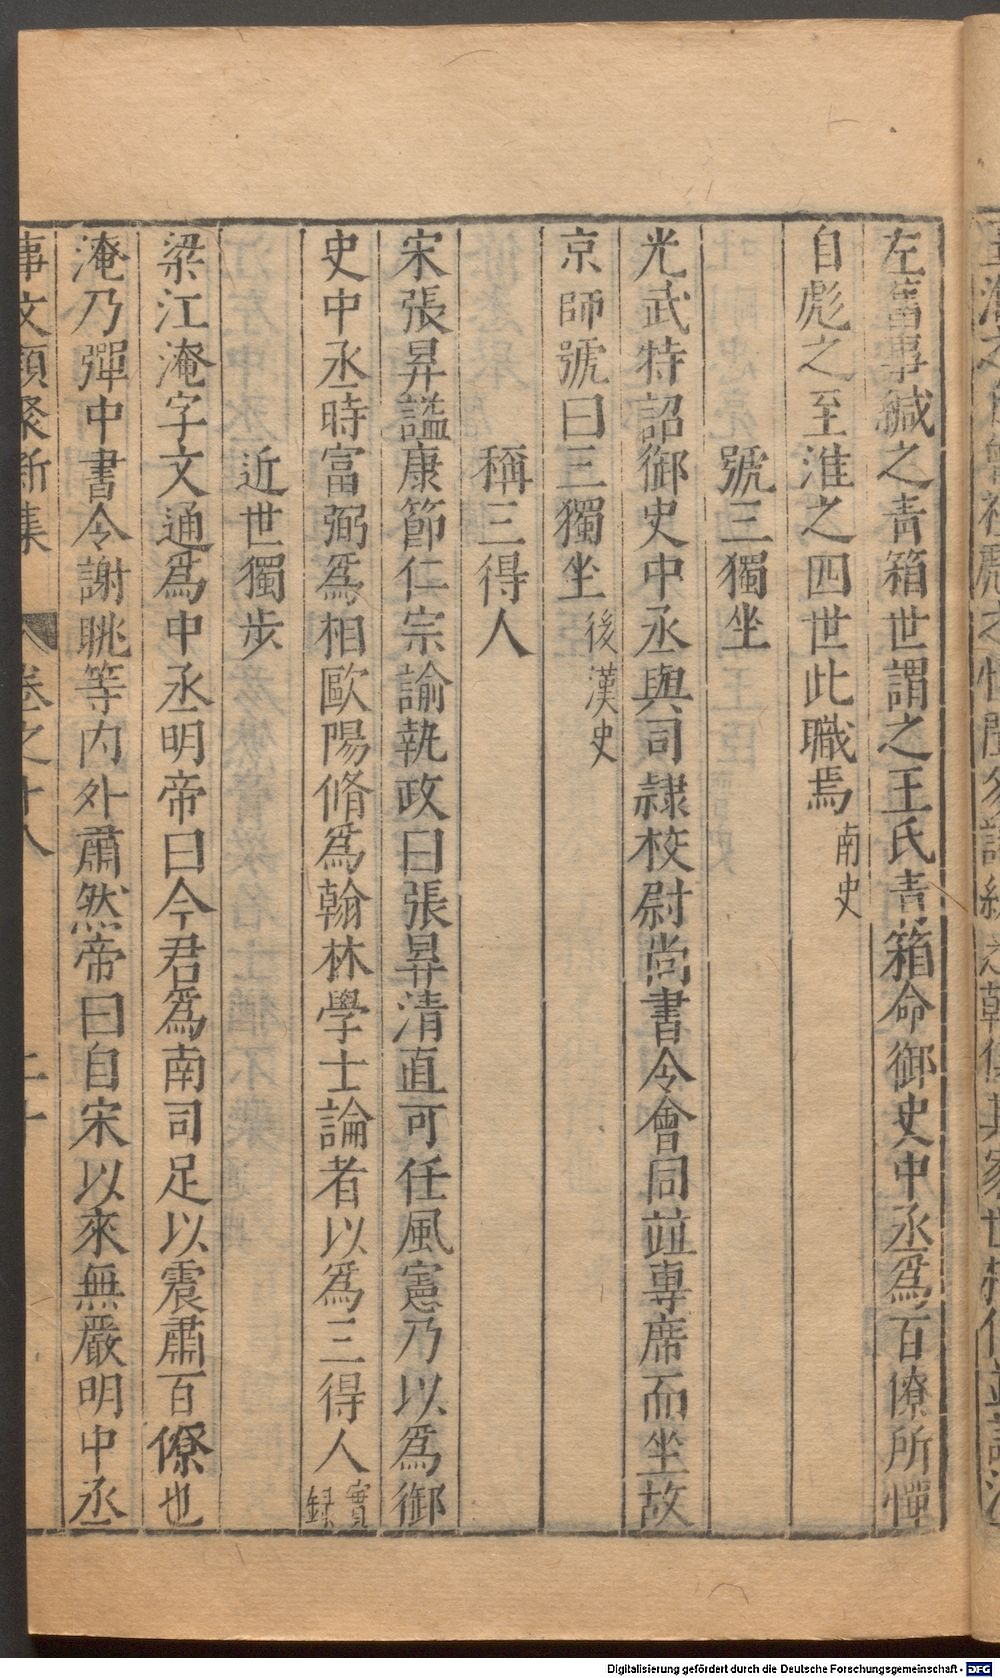 左舊事緘之青箱世謂之王氏青箱命御史中丞爲百僚所憚
自彪之至淮之四世此職焉 南史
號三獨坐
光武特詔御史中丞與司隷校尉尚書令會同並專席而坐故
京師號曰三獨坐 後漢史
稱三得人
宋張昇謚康節仁宗諭執政曰張昇清直可任風憲乃以爲御
史中丞時富弼爲相歐陽脩爲翰林學士論者以爲三得人 實録
近世獨步
梁江淹字文通爲中丞明帝曰今君爲南司足以震肅百僚也
淹乃彈中書令謝朓等内外肅然帝曰自宋以來無嚴明中丞
事文類聚新集 卷之十八 二十
Digitalisierung gefördert durch die Deutsche Forschungsgemeinschaft - DFG